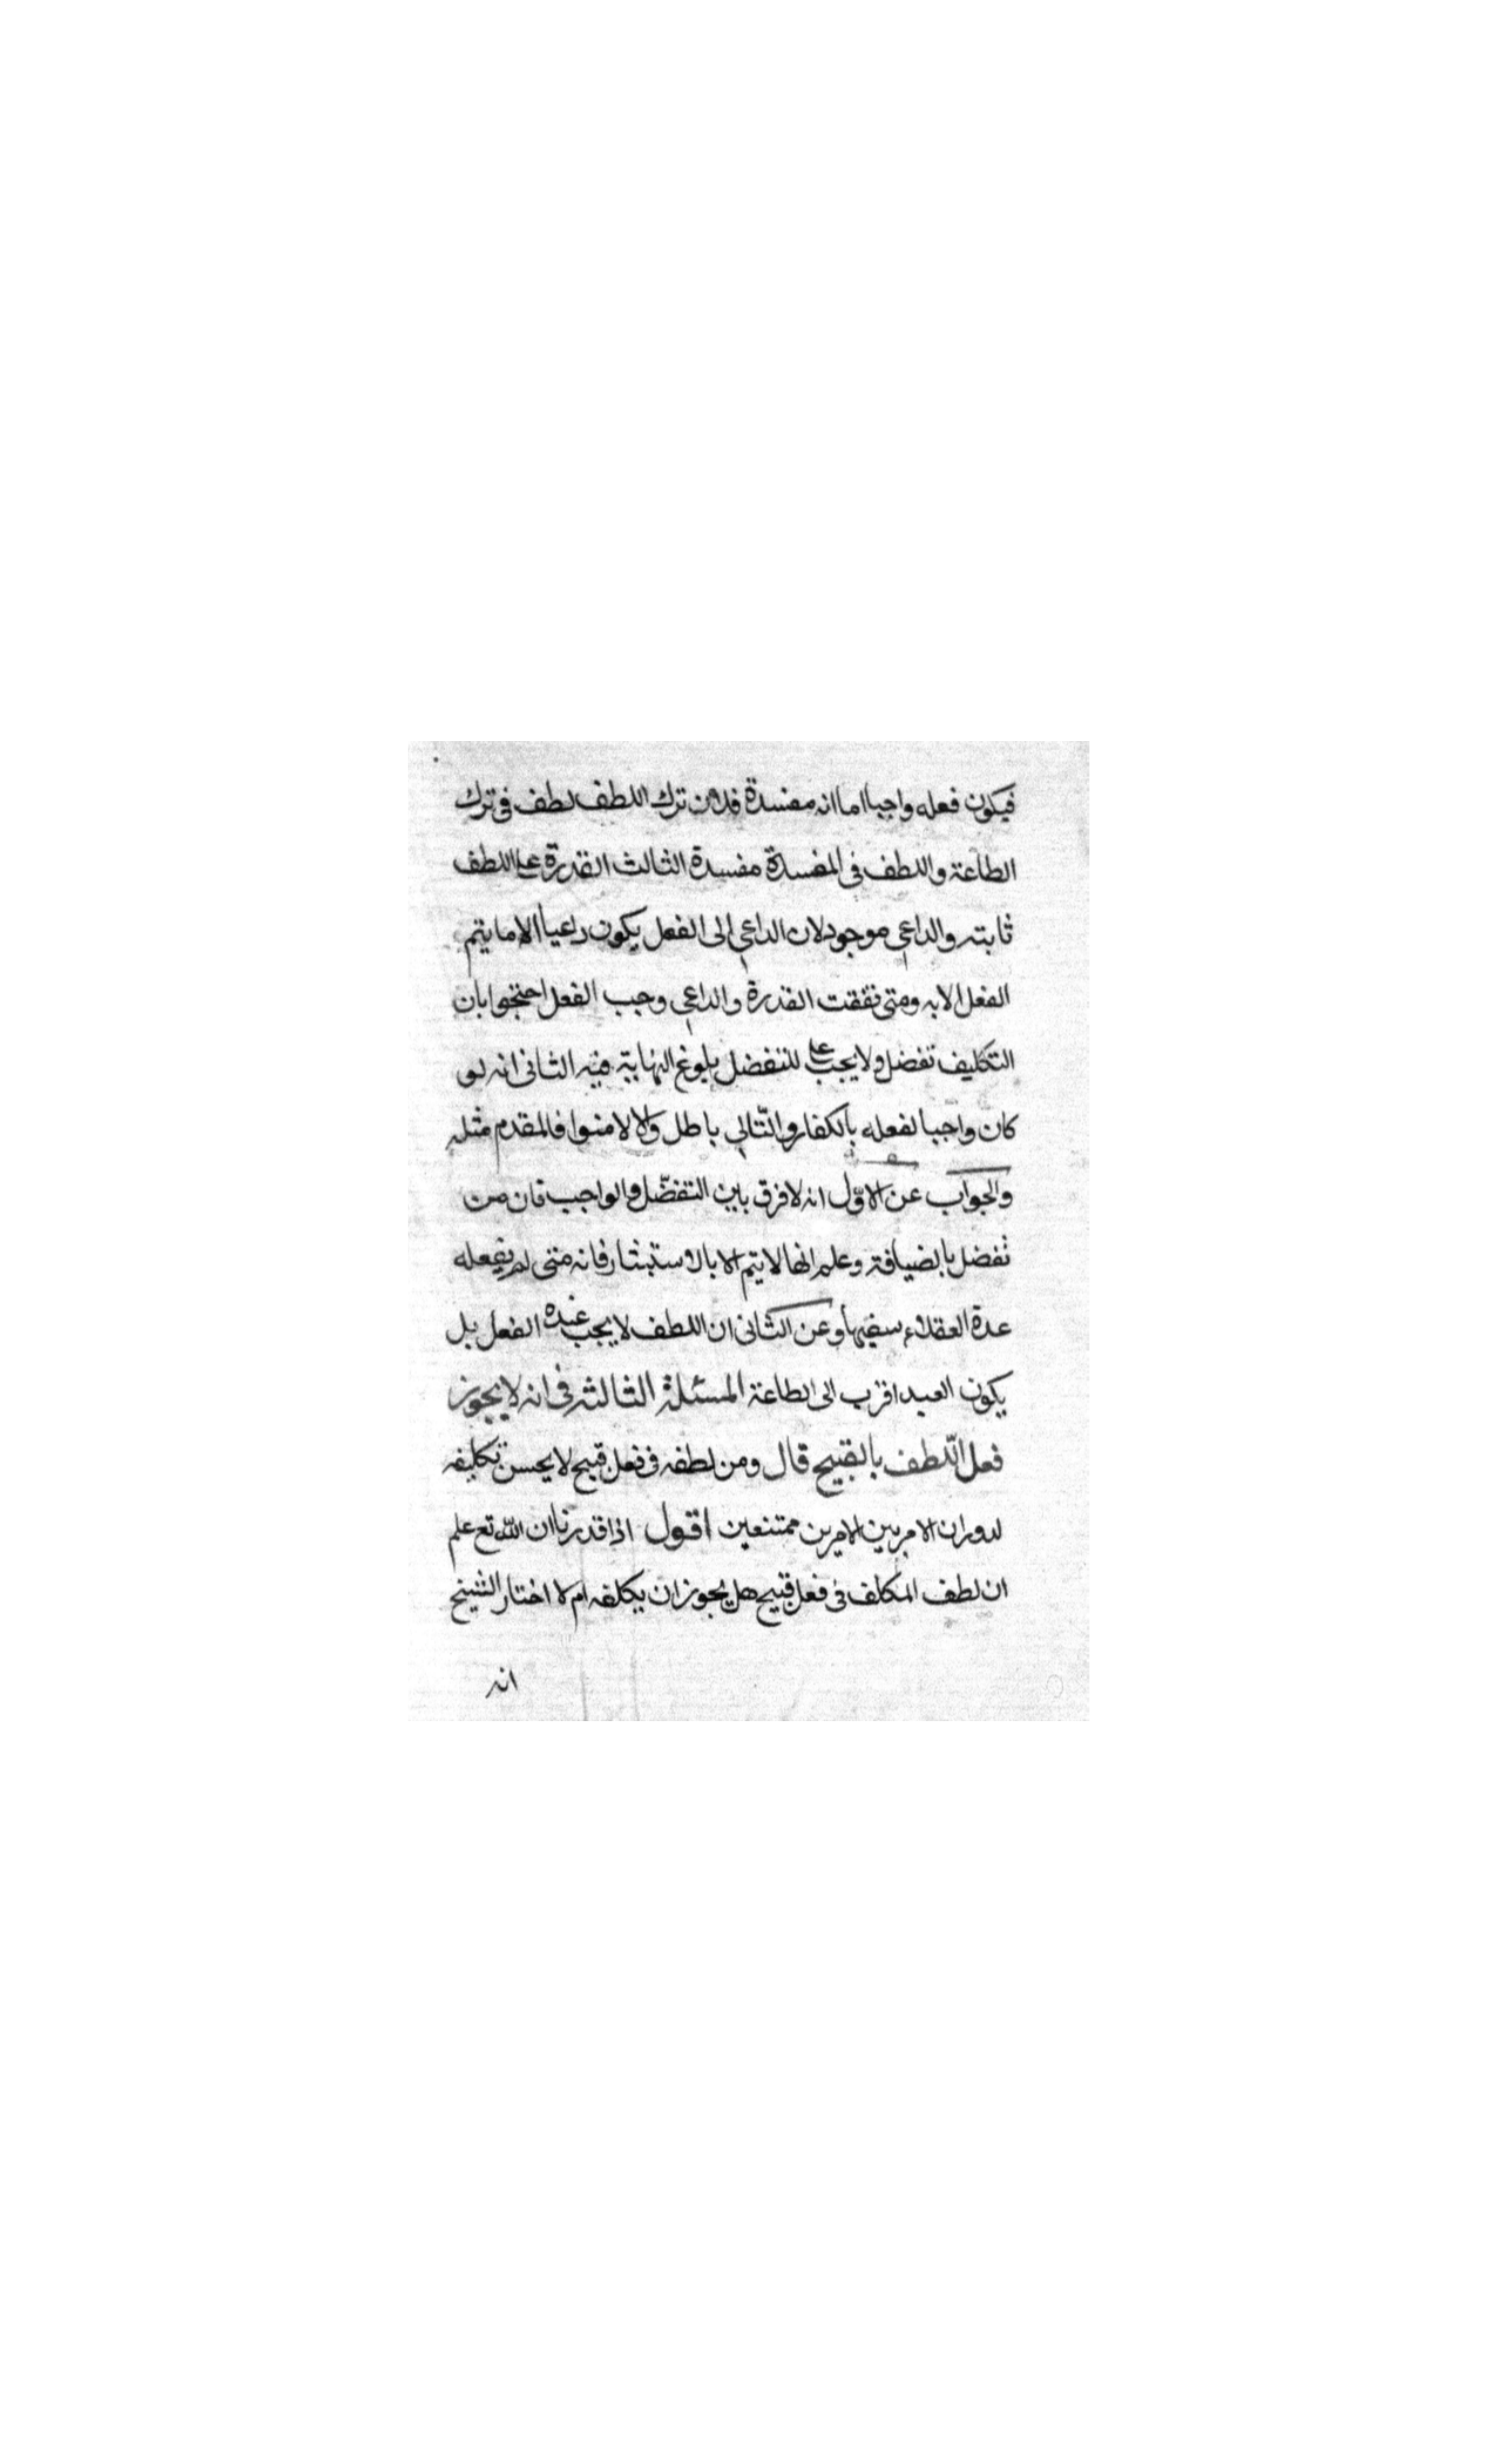 فيكون فعله واجبا اما انه مفسدة فلان ترك اللطف لطف فى ترك
الطاعة واللطف فى المفسدة مفسدة الثالث القدرة على اللطف
ثابته والداعى موجود لان الداعى الى الفعل يكون داعيا الا ما يتم
الفعل الا به ومتى تفقت القدرة والداعى وجب الفعل احتجوا بان
التكليف تفضل ولا يجب على المتفضل بلوغ النهاية فيه الثانى انه لو
كان واجبا لفعله بالكفار والتّالى باطل والا لامنوا فالمقدم مثله
والجواب عن الاوّل انه لا فرق بين التفضّل والواجب فان من
تفضل بالضيافة وعلم انها لا يتم الا بالاستبشار فانه متى لم يفعله
عدة العقلاء سفيها وعن الثانى ان اللطف لا يجب عنده الفعل بل
يكون العبد اقرب الى الطاعة المسئلة الثالثه فى انه لا يجوز
فعل اللّطف بالقبيح قال ومن لطفه فى فعل قبيح لا يحسن تكليفه
لدوران الامر بين الامرين ممتنعين اقول اذا قدرنا ان الله تع علم
ان لطف المكلف فى فعل قبيح هل يجوز ان يكلفه ام لا اختار الشيخ
انه